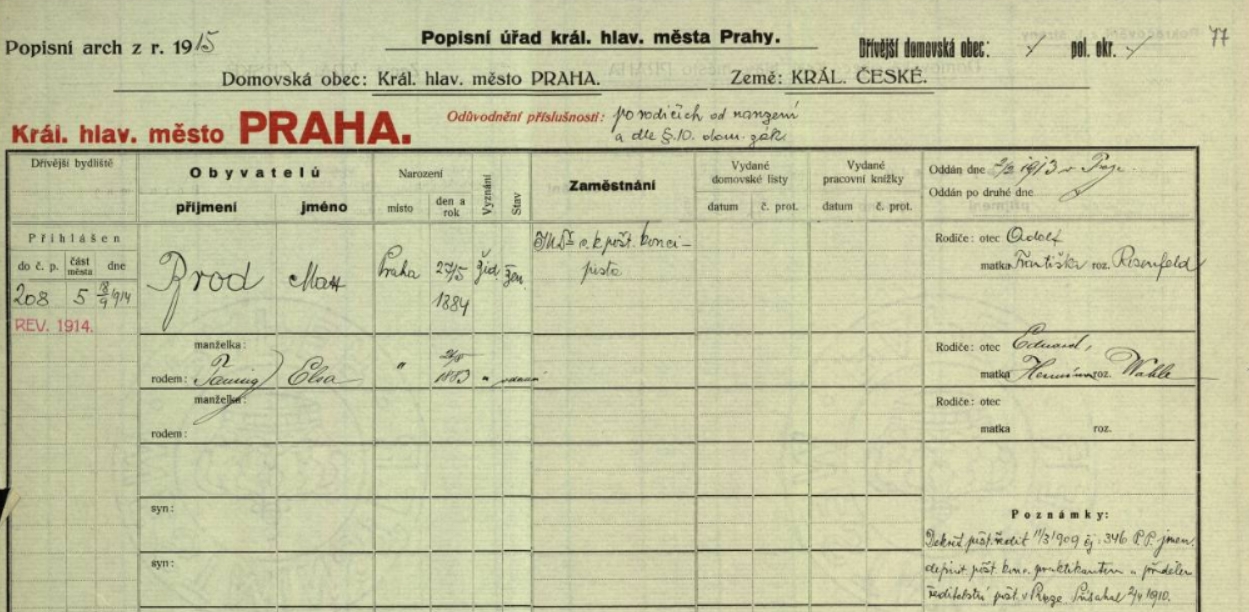 Popisní arch z r. 1915
Popisní úřad král. hlav. města Prahy.
Dřívější domovská obec: pol. okr. 77
Domovská obec: Král. hlav. město PRAHA. Země: KRÁL. ČESKÉ.
Král. hlav. město PRAHA.
Odůvodnění příslušnosti: po rodičích od narození
a dle §.10. dom. zák.
Dřívější bydliště
Obyvatelů
příjmení jméno
Narození
místo den a rok
Vyznání
Stav
Zaměstnání
Vydané domovské listy
datum č. prot.
Vydané pracovní knížky
datum č. prot.
Oddán dne 2/2 1913 v Praze.
Oddán po druhé dne
Přihlášen
do č. p. část města dne
208 5 8/9 1914
REV. 1914.
Brod Max Praha 27/5 1884 žid. žen.
JUDr c. k. pošt. konci-
pista
Rodiče: otec Adolf
matka Františka roz. Rosenfeld
manželka:
rodem: Taussig Elsa " 1883 " vdaná
Rodiče: otec Eduard,
matka Hermina roz. Wahle
manželka:
rodem:
Rodiče: otec
matka roz.
syn:
syn:
Poznámky:
Dekret pošt. ředit. 11/3 1909 čj. 346 P.P. jmen.
definit. pošt. konc. praktikantem a přidělen
ředitelství pošt. v Praze. Přísahal 2/4 1910.